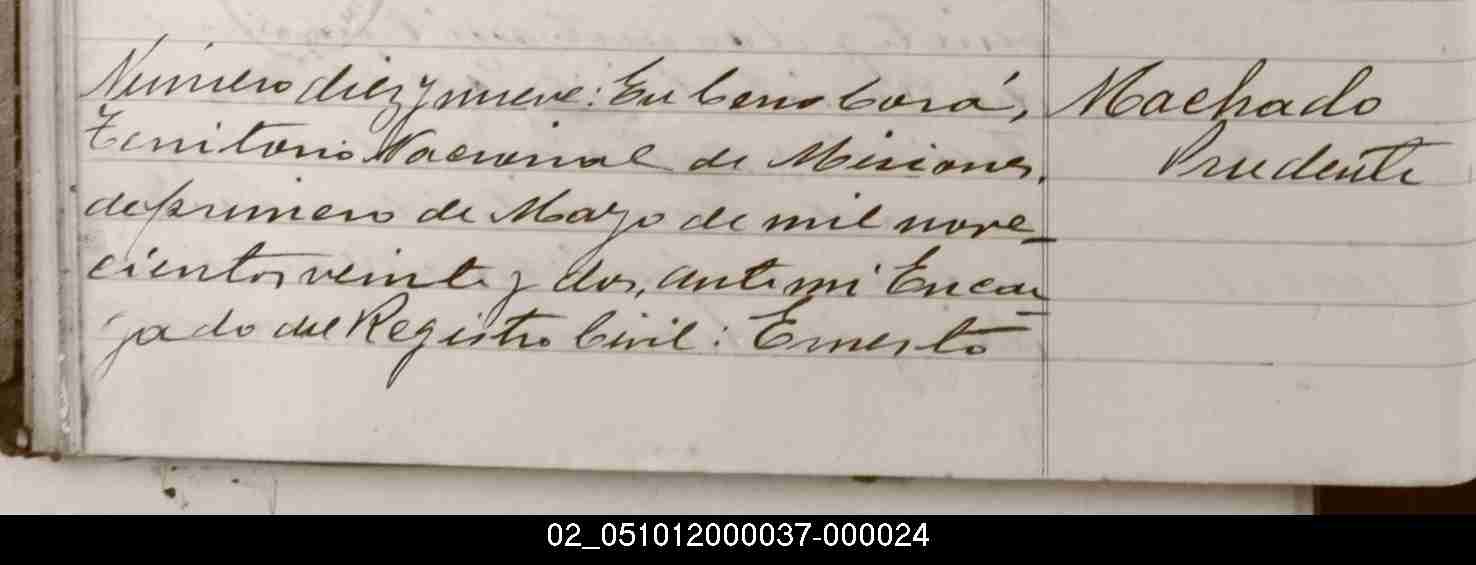 Número diez y nueve: En Cerro Corá,
Territorio Nacional de Misiones,
a primero de Mayo de mil nove-
cientos veinte y dos, ante mi Encar-
gado del Registro Civil: Ernesto
Machado
Prudente
02_051012000037-000024